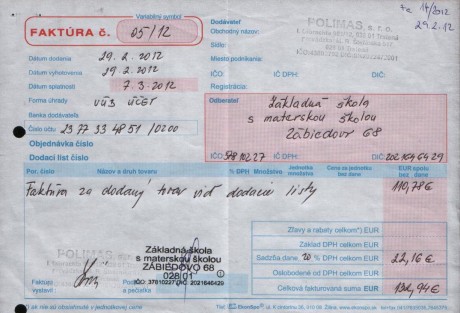 Fa 17/2012
29.2.12
Variabilný symbol
FAKTÚRA č. 05/12
Dodávateľ
Obchodný názov:
POLIMAS, s. r. o.
Sídlo:
Miesto podnikania:
Dátum dodania 29. 2. 2012
Dátum vyhotovenia 29. 2. 2012
Dátum splatnosti 7. 3. 2012
Forma úhrady VÚB ÚČET
Banka dodávateľa
Číslo účtu 2377334851/0200
Objednávka číslo
Dodací list číslo
IČO: IČ DPH: DIČ:
Registrácia:
Odberateľ
Základná škola
s materskou školou
Zábiedovo 68
IČO: 37810227 IČ DPH: DIČ: 2021646429
Por. číslo Názov a druh tovaru % DPH Množstvo Jednotka množstva Cena za jednotku bez dane EUR spolu bez dane
Faktúra za dodaný tovar viď dodacie listy 110,78€
Zľavy a rabaty celkom EUR
Základ DPH celkom EUR
Sadzba dane 20 % DPH celkom EUR 22,16 €
Oslobodené od DPH celkom EUR
Celková fakturovaná suma EUR 132,94€
POLIMAS, s. r. o.
Základná škola
s materskou školou
ZÁBIEDOVO 68
028 01
IČO: 37810227 DIČ: 2021646429
Faktúru vystavil
Podpis a pečiatka